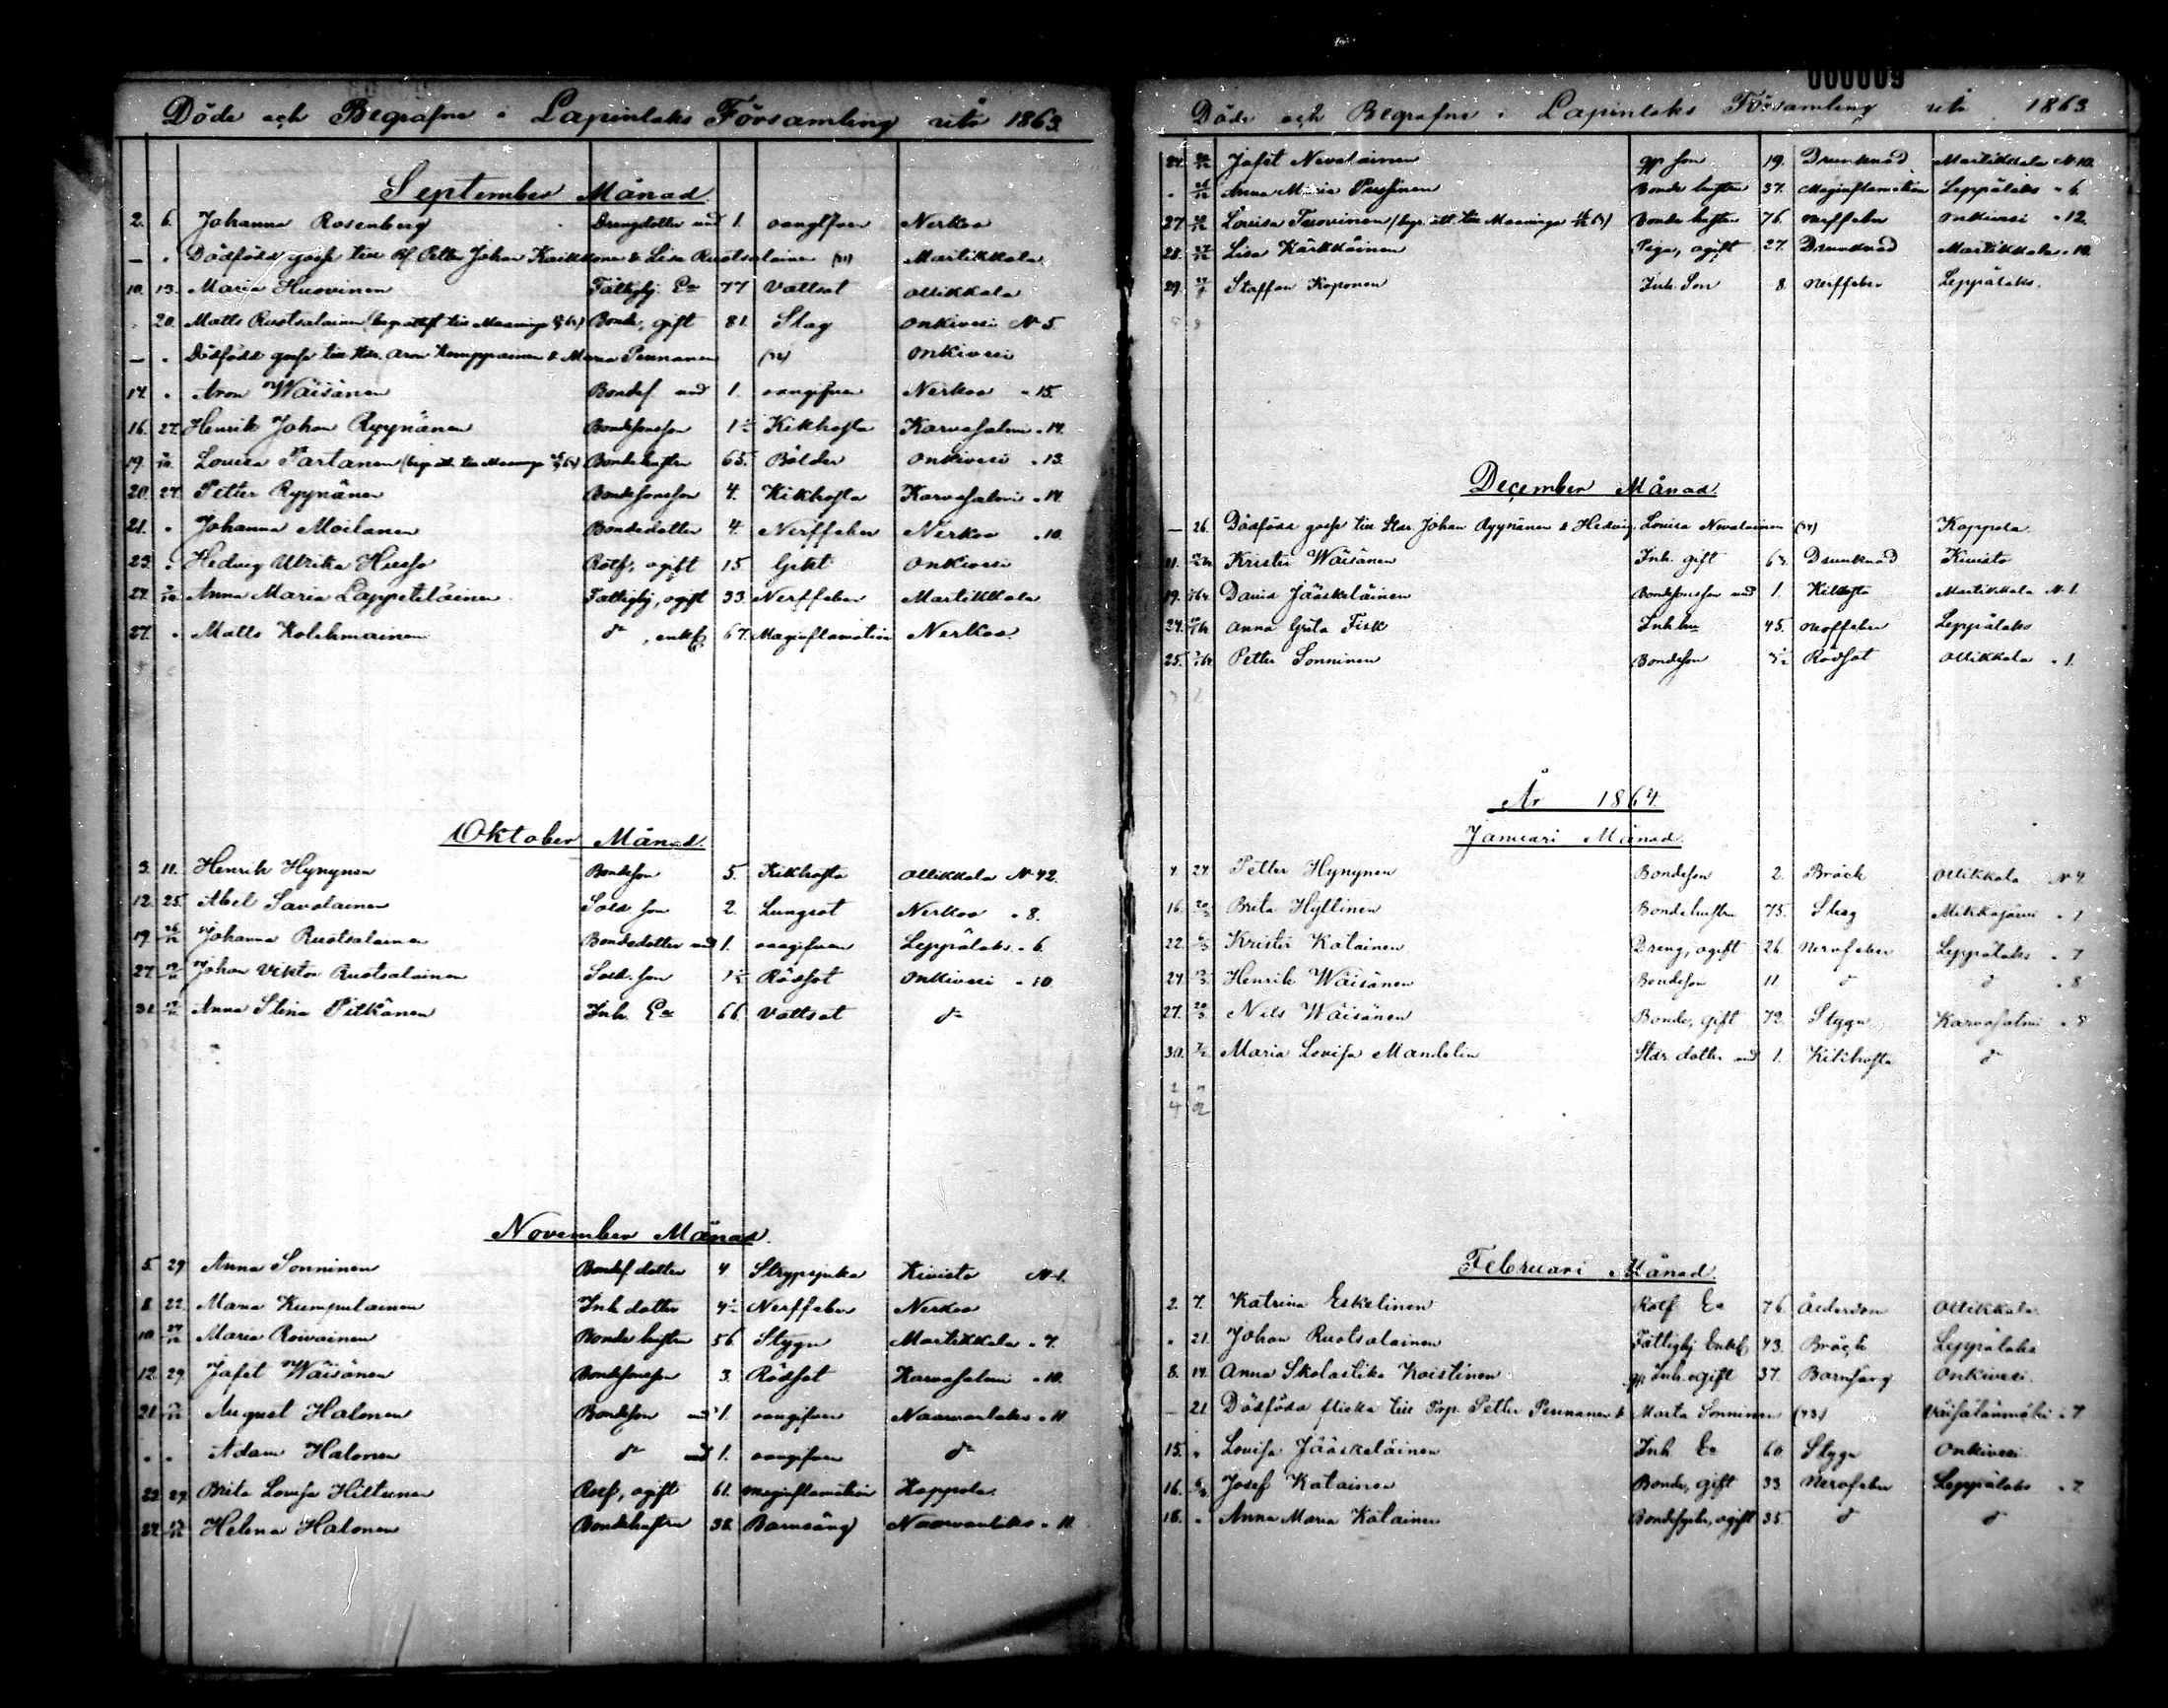 Döde och Begrafne i Lapinlaks Församling uti 1863.
September Månad
2. 6. Johanna Rosenberg Drengdotter und 1. oangifven Nerkoo
— " Dödfödd gosse till Petter Johan Kaikkonen & Lisa Ruotsalainen Martikkala
10. 13. Maria Huovinen Fattighj. Ea 77 Vattsot Ollikkala
" 20. Matts Ruotsalainen Bonde, gift 81. Slag Onkivesi N 5.
— " Dödfödd gosse till Aron Kemppainen & Maria Pennanen Onkivesi
14. " Aron Wäisänen Bondes. und 1. oangifven Nerkoo " 15.
16. 27. Henrik Johan Ryynänen Bondesonson 1 Kikhosta Karvasalmi " 14.
19. Lovisa Partanen Bondehustru 65. Bölder Onkivesi " 13.
20. 27. Petter Ryynänen Bondesonson 4. Kikhosta Karvasalmi " 14.
21. " Johanna Moilanen Bondedotter 4. Nerffeber Nerkoo " 10.
23. " Hedvig Ulrika Husso Rotf, ogift 15 Gikt Onkivesi
24. Anna Maria Lappeteläinen Fattighj, ogift 33. Nerffeber Martikkala
27. " Matts Kolehmainen do, enkl 67. Maginflamation Nerkoo.
Oktober Månad.
3. 11. Henrik Hynynen Bondeson 5. Kikhosta Ollikkala N 42.
12. 25. Abel Savolainen Sold. son 2. Lungsot Nerkoo " 8.
19. Johanna Ruotsalainen Bondedotter und 1. oangifven Leppälaks " 6.
27. Johan Viktor Ruotsalainen Sold. son 1 Rödsot Onkivesi " 10.
31. Anna Stina Pitkänen Inh. Ea 66. Vattsot do
November Månad.
5. 29. Anna Sonninen Bondes. dotter 4 Strypsjuka Kivistö N 1.
8. 22. Maria Kumpulainen Inh. dotter 4 Nerffeber Nerkoo
10. Maria Roivainen Bonde hustru 56. Stygn Martikkala " 7.
12. 29. Jafet Wäisänen Bondesonson 3. Rödsot Karvasalmi " 10.
21. August Halonen Bondeson und 1. oangifven Naarvanlaks " 11.
" " Adam Halonen do und 1. oangifven do
22. 29. Brita Lovisa Hiltunen Rotf, ogift 61. Maginflamation Happola.
24. Helena Halonen Bondehustru 38. Barnsäng Naarvanlaks " 11.
000009
Döde och Begrafne i Lapinlaks Församling uti 1863
24. Jafet Nevalainen son 19. Drunknad Martikkala N 10.
" Anna Maria Pussinen Bonde hustru 37. Maginflamation Leppälaks " 6.
27. Lovisa Tuovinen Bonde hustru 76. Nerffeber Onkivesi " 12.
28. Lisa Kärkkäinen Piga, ogift 27. Drunknad Martikkala " 10.
29. Staffan Koponen Inh. Son 8. Nerffeber Leppälaks.
December Månad.
— 26. Dödfödd gosse till Johan Ryynänen & Hedvig Lovisa Nevalainen Kappola.
11. Krister Wäisänen Inh. gift Drunknad Kivistö
19. David Jääskeläinen Bondesonson und 1. Kikhosta Martikkala N. 1.
24. Anna Greta Fisk Inh. hu 45. Leppälaks
25. Petter Sonninen Bondeson Rödsot Ollikkala " 1.
År 1864.
Januari Månad.
4. 24. Petter Hynynen Bondeson 2. Bråck Ollikkala N 4.
16. Brita Hyttinen Bondehustru 75. Slag
22. Krister Katainen Dreng, ogift 26. Nervfeber Leppälaks " 7
24. Henrik Wäisänen Bondeson 11. do do " 8
27. Nils Wäisänen Bonde, gift 72. Stygn Karvasalmi
30. Maria Lovisa Mandelin dotter und 1. Kikhosta do
Februari Månad.
2. 7. Katrina Eskelinen Rotf Ea 76. Ålderdom Ollikkala.
" 21. Johan Ruotsalainen Fattighj Enkl 43. Bråck Leppälaks
8. 14. Anna Skolastika Koistinen Inh. ogift 37. Barnsäng Onkivesi.
— 21. Dödfödd flicka till Petter Pennanen & Marta Sonninen
15. " Lovisa Jääskeläinen Inh Ea 60. Stygn Onkivesi.
16. Josef Katainen Bonde, gift 33. Nervfeber Leppälaks " 7.
18. " Anna Maria Katainen ogift 35. do do